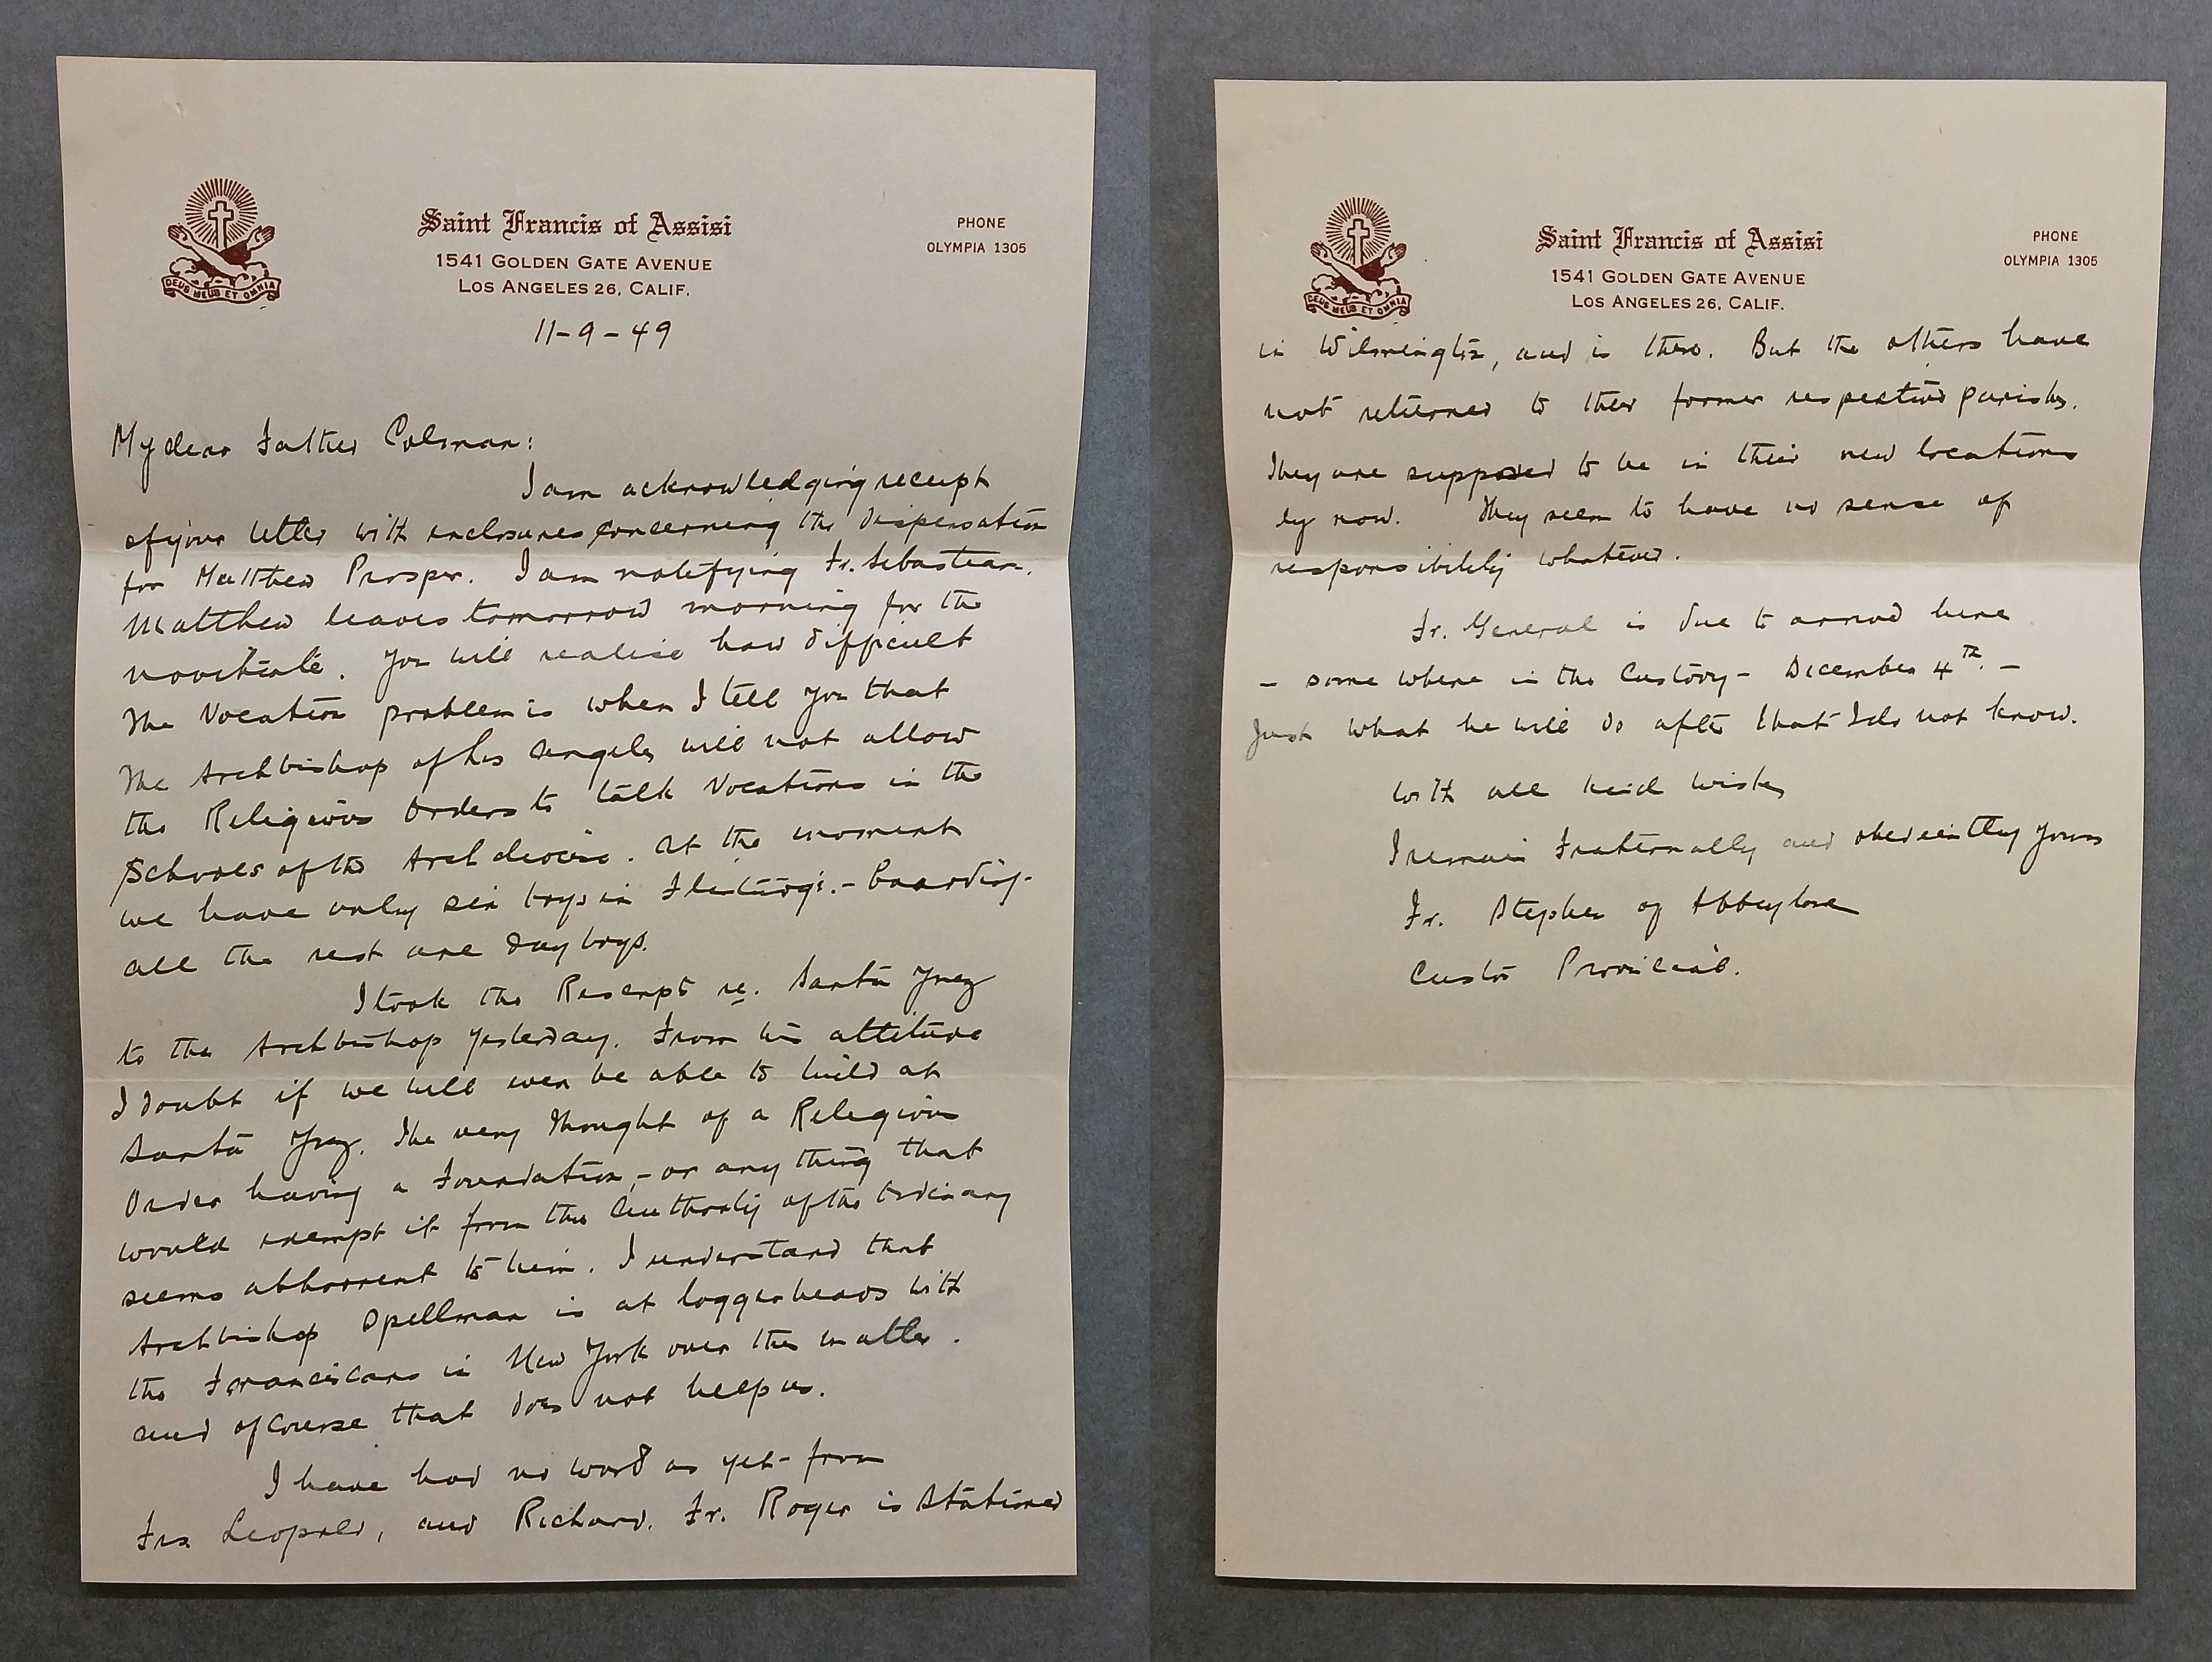 DEUS MEUS ET OMNIA
Saint Francis of Assisi
1541 GOLDEN GATE AVENUE
LOS ANGELES 26, CALIF.
PHONE
OLYMPIA 1305
11-9-49
My dear Father Colman:
I am acknowledging receipt
of your letter with enclosures concerning the dispensation
for Matthew Prosper. I am notifying Fr. Sebastian.
Matthew leaves tomorrow morning for the
novitiate. You will realise how difficult
The Vocation problem is when I tell you that
The Archbishop of Los Angeles will not allow
the Religious Orders to talk Vocations in the
Schools of the Archdiocese. At the moment
we have only six boys in - Boarding -
all the rest are day boys.
I took the Rescript re. Santa Ynez
to the Archbishop yesterday. From his attitude
I doubt if we will ever be able to build at
Santa Ynez. The very thought of a Religious
Order having a Foundation, - or any thing that
would exempt it from the authority of the Ordinary
seems abhorrent to him. I understand that
Archbishop Spellman is at loggerheads with
the Franciscans in New York over the matter.
and of course that does not help us.
I have had no word as yet - from
Frs. Leopold, and Richard. Fr. Roger is stationed
DEUS MEUS ET OMNIA
Saint Francis of Assisi
1541 GOLDEN GATE AVENUE
LOS ANGELES 26, CALIF.
PHONE
OLYMPIA 1305
in Wilmington, and is there. But the others have
not returned to their former respective parishes.
They are supposed to be in their new locations
by now. They seem to have no sense of
responsibility whatever.
Fr. General is due to arrive here
- some where in the Custody - December 4th. -
Just what he will do after that I do not know.
With all kind wishes
I remain Fraternally and obediently yours
Fr. Stephen of Abbeyleix
Custos Provincial.